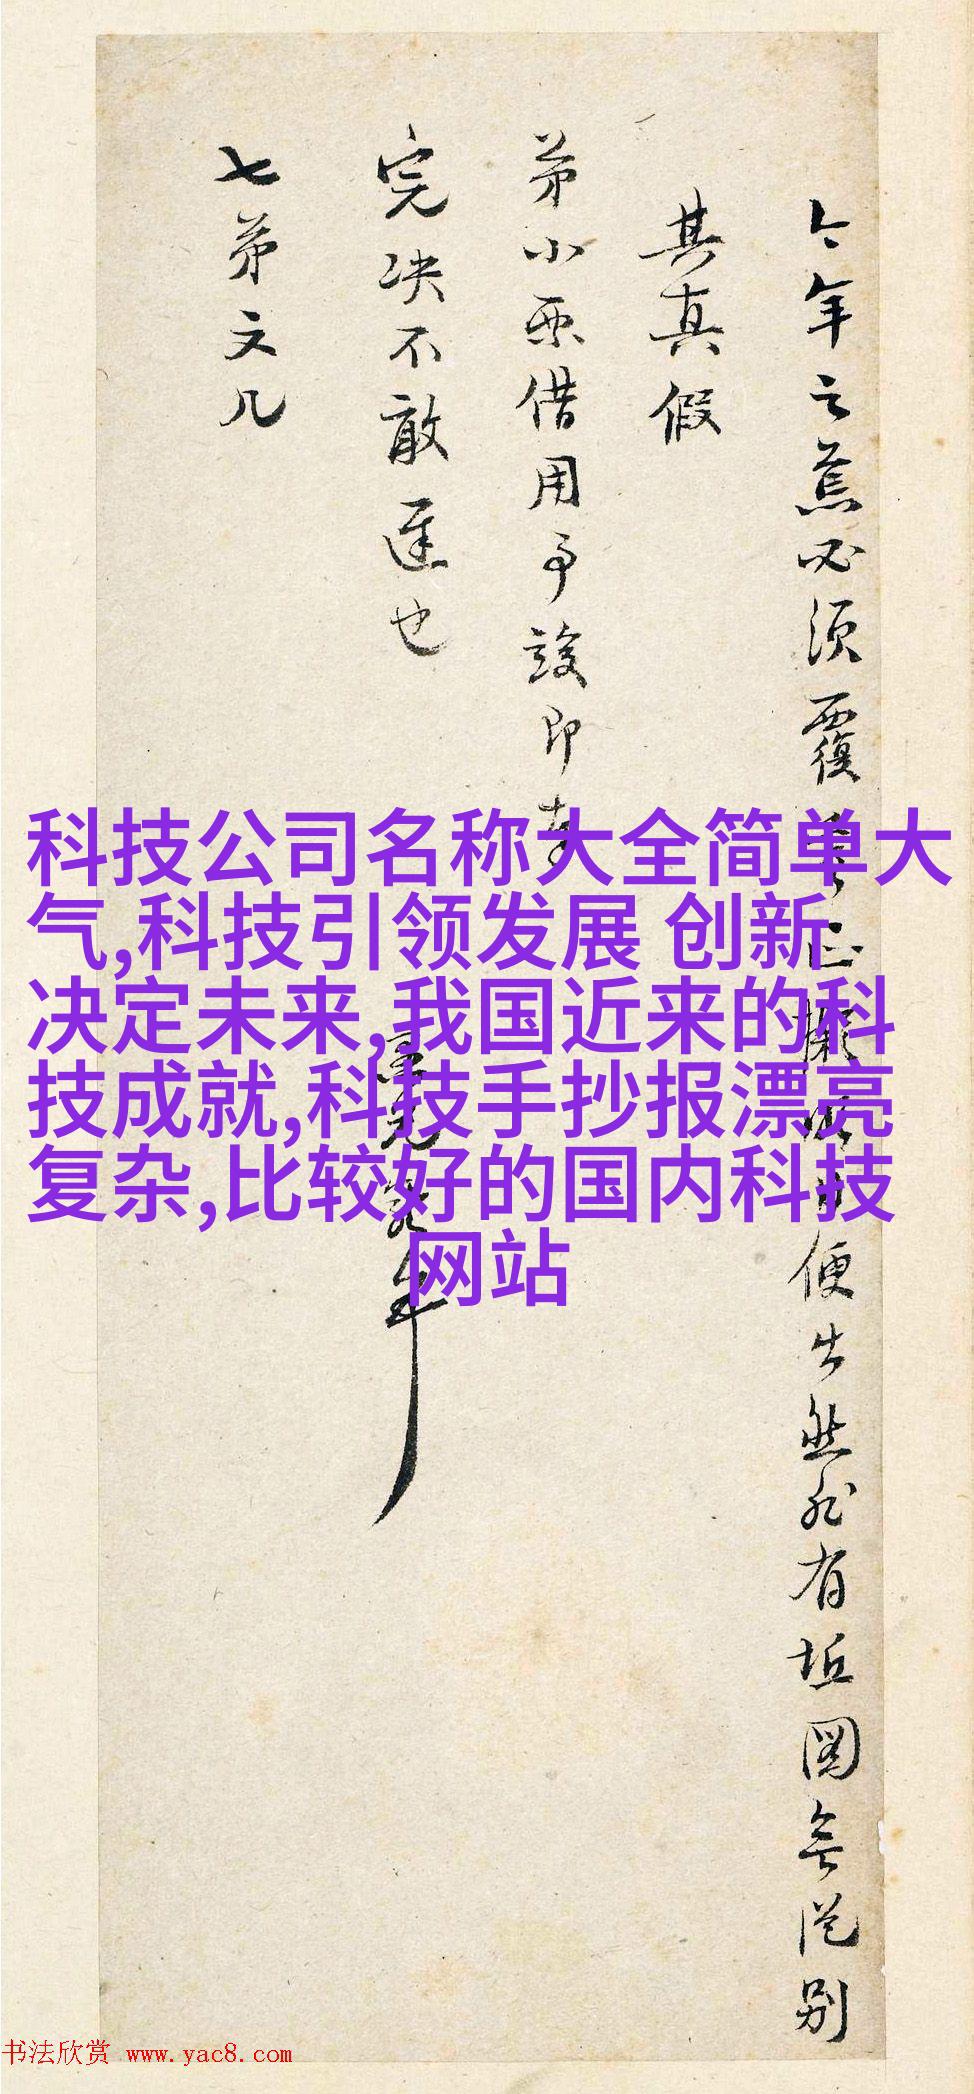 今年之蕉必須覆
便出然非有坵圖無從別
其真假
弟小票借用事竣即奉
完决不敢遲也
七弟文几
科技公司名称大全简单大
气,科技引领发展 创新
决定未来,我国近来的科
技成就,科技手抄报漂亮
复杂,比较好的国内科技
网站
书法欣赏 www.yac8.com